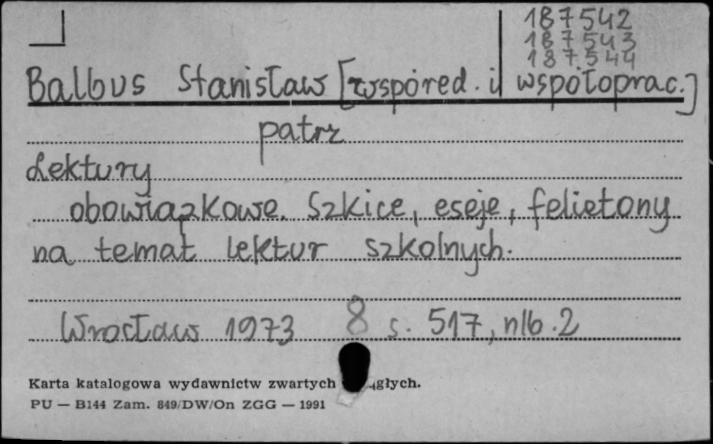 187542
187543
187544
Balbus Stanisław [współred. i współoprac.]
patrz
Lektury
obowiązkowe. Szkice, eseje, felietony
na temat lektur szkolnych.
Wrocław 1973 8 s. 517, nlb. 2
Karta katalogowa wydawnictw zwartych głych.
PU — B144 Zam. 849/DW/On ZGG — 1991